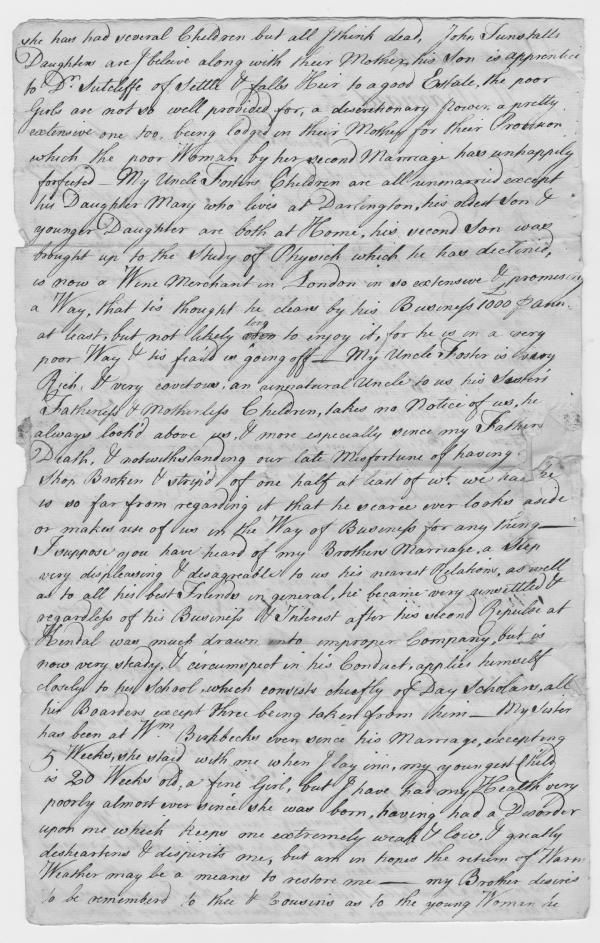 she has had several Children but all I think dead, John Tunstalls
Daughters are I beleive along with their Mother, his Son is apprentice
to Dr Sutcliffe of Settle & falls Heir to a good Estate, the poor
Girls are not so well provided for, a discretionary Power, a pretty
extensive one too, being lodg'd in their Mother for their Provision
which the poor Woman by her second Marriage has unhappily
forfeited — My Uncle Fosters Children are all unmarried except
his Daughter Mary who lives at Darrington, his oldest Son &
younger Daughter are both at Home, his second Son was
brought up to the Study of Physick which he has declin'd,
is now a Wine Merchant in London in so extensive & promising
a Way, that tis thought he clears by his Business 1000 ₤ Ann.
at least, but not likely long to enjoy it, for he is in a very
poor Way & tis fear'd is going off — My Uncle Foster is very
Rich, & very covetous, an unnatural Uncle to us, his Sister's
Fatherless & Motherless Children, takes no Notice of us, he
always look'd above us, & more especially since my Fathers
Death, & notwithstanding our late Misfortune of having
Shop Broken & strip'd of one half at least of wt. we had he
is so far from regarding it that he scarce ever looks aside
or makes use of us in the Way of Business for any thing —
I suppose you have heard of my Brothers Marriage, a Step
very displeasing & disagreable to us his nearest Relations, as well
as to all his best Friends in general, he became very unsettled &
regardless of his Business & Interest after his second Repulse at
Kendal was much drawn into improper Company, but is
now very steady, & circumspect in his Conduct, applies himself
closely to his School, which consists chiefly of Day Scholars, all
his Boarders except three being taken from him — My Sister
has been at Wm Birkbecks ever since his Marriage, excepting
5 Weeks, she staid with me when I lay inn, my youngest Child
is 20 Weeks old, a fine Girl, but I have had my Health very
poorly almost ever since she was born, having had a Disorder
upon me which keeps one extremely weak & low, & greatly
disheartens & dispirits me, but am in hopes the return of Warm
Weather may be a means to restore me — my Brother desires
to be rememberd to thee & Cousins as to the young Woman he